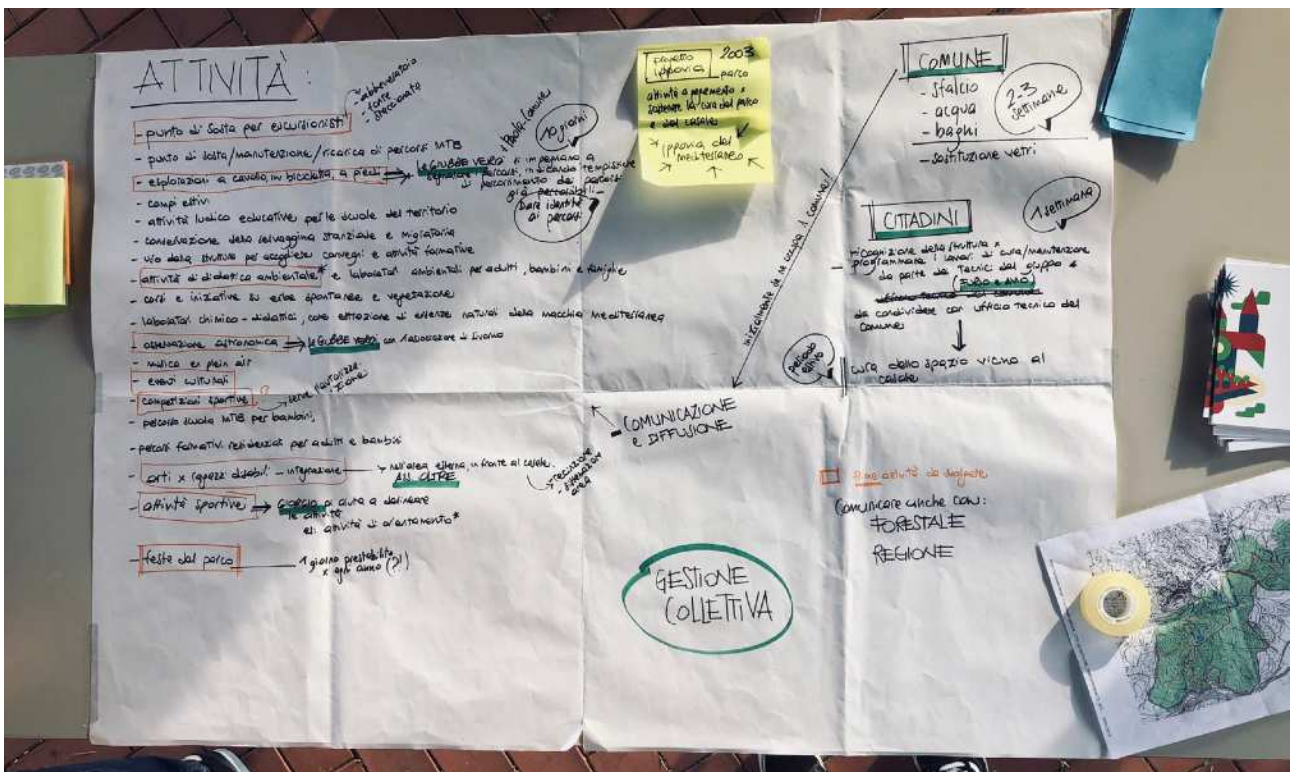 ATTIVITÀ:
- abbeveratoio
- fonte
- staccionata
- punto di sosta per escursionisti
- punto di sosta/manutenzione/ricarica di percorsi MTB
- esplorazioni a cavallo, in bicicletta, a piedi → le GIUBBE VERDI si impegnano a
segnalare percorsi, indicando tempistiche
di percorrimento dei percorsi
già percorribili
dare identità
ai percorsi
10 giorni
- campi estivi
- attività ludico educative per le scuole del territorio
- conservazione della selvaggina stanziale e migratoria
- uso della struttura per accogliere convegni e attività formative
- attività di didattica ambientale* e laboratori ambientali per adulti, bambini e famiglie
- corsi e iniziative su erbe spontanee e vegetazione
- laboratori chimico-didattici, come estrazione di essenze naturali della macchia mediterranea
- osservazione astronomica → le GIUBBE VERDI con l'associazione di Livorno
- musica en plein air
- eventi culturali
- competizioni sportive
serve
- percorso scuola MTB per bambini,
- percorsi formativi residenziali per adulti e bambini
- orti x ragazzi disabili - integrazione → nell'area esterna, in fronte al casale.
AN. OLTRE
→ recinzione
- sistemazione
area
- attività sportive → GIORGIO ci aiuta a delineare
le attività
es: attività di orientamento*
- feste del parco → 1 giorno prestabilito
x ogni anno (?!)
progetto
ippovia 2003
parco
attività a pagamento x
sostenere la cura del parco
e del casale
* ippovia del
mediterraneo
inizialmente se ne occupa il comune!
- COMUNICAZIONE
e DIFFUSIONE
GESTIONE
COLLETTIVA
COMUNE
- sfalcio
- acqua
- bagni
- sostituzione vetri
2-3
settimane
CITTADINI
1 settimana
- ricognizione della struttura x
programmare i lavori di cura/manutenzione
da parte dei tecnici del gruppo e
(FURIO e AMO)
da condividere con ufficio tecnico del
comune
↓
cura dello spazio vicino al
casale
periodo
estivo
prime attività da svolgere
Comunicare anche con:
FORESTALE
REGIONE